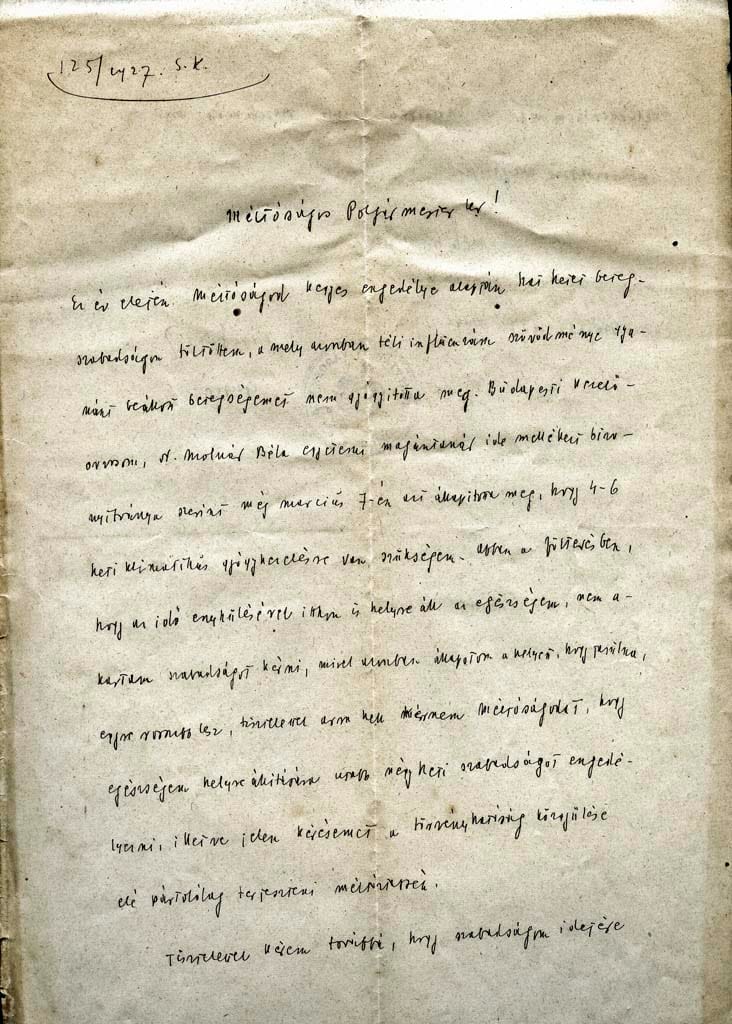 125/1927. S.K.
Méltóságos Polgármester Úr!
Ez év elején Méltóságod kegyes engedélye alapján hat heti beteg-
szabadságon töltöttem, a mely azonban téli influenzám szövődménye gya-
nánt beállott betegségemet nem gyógyította meg. Budapesti kezelő-
orvosom, dr. Molnár Béla egyetemi magántanár ide mellékelt bizo-
nyítványa szerint még március 7-én azt állapította meg, hogy 4-6
heti klimatikus gyógykezelésre van szükségem. Abban a föltevésben,
hogy az idő enyhülésével itthon is helyre áll az egészségem, nem a-
kartam szabadságot kérni, mivel azonban állapotom a helyett, hogy javulna,
egyre rosszabb lesz, tisztelettel arra kell kérnem Méltóságodat, hogy
egészségem helyreállítására újabb négy heti szabadságot engedé-
lyezni, illetve jelen kérésemet a törvényhatóság közgyűlése
elé pártolólag terjeszteni méltóztassék.
Tisztelettel kérem továbbá, hogy szabadságom idejére